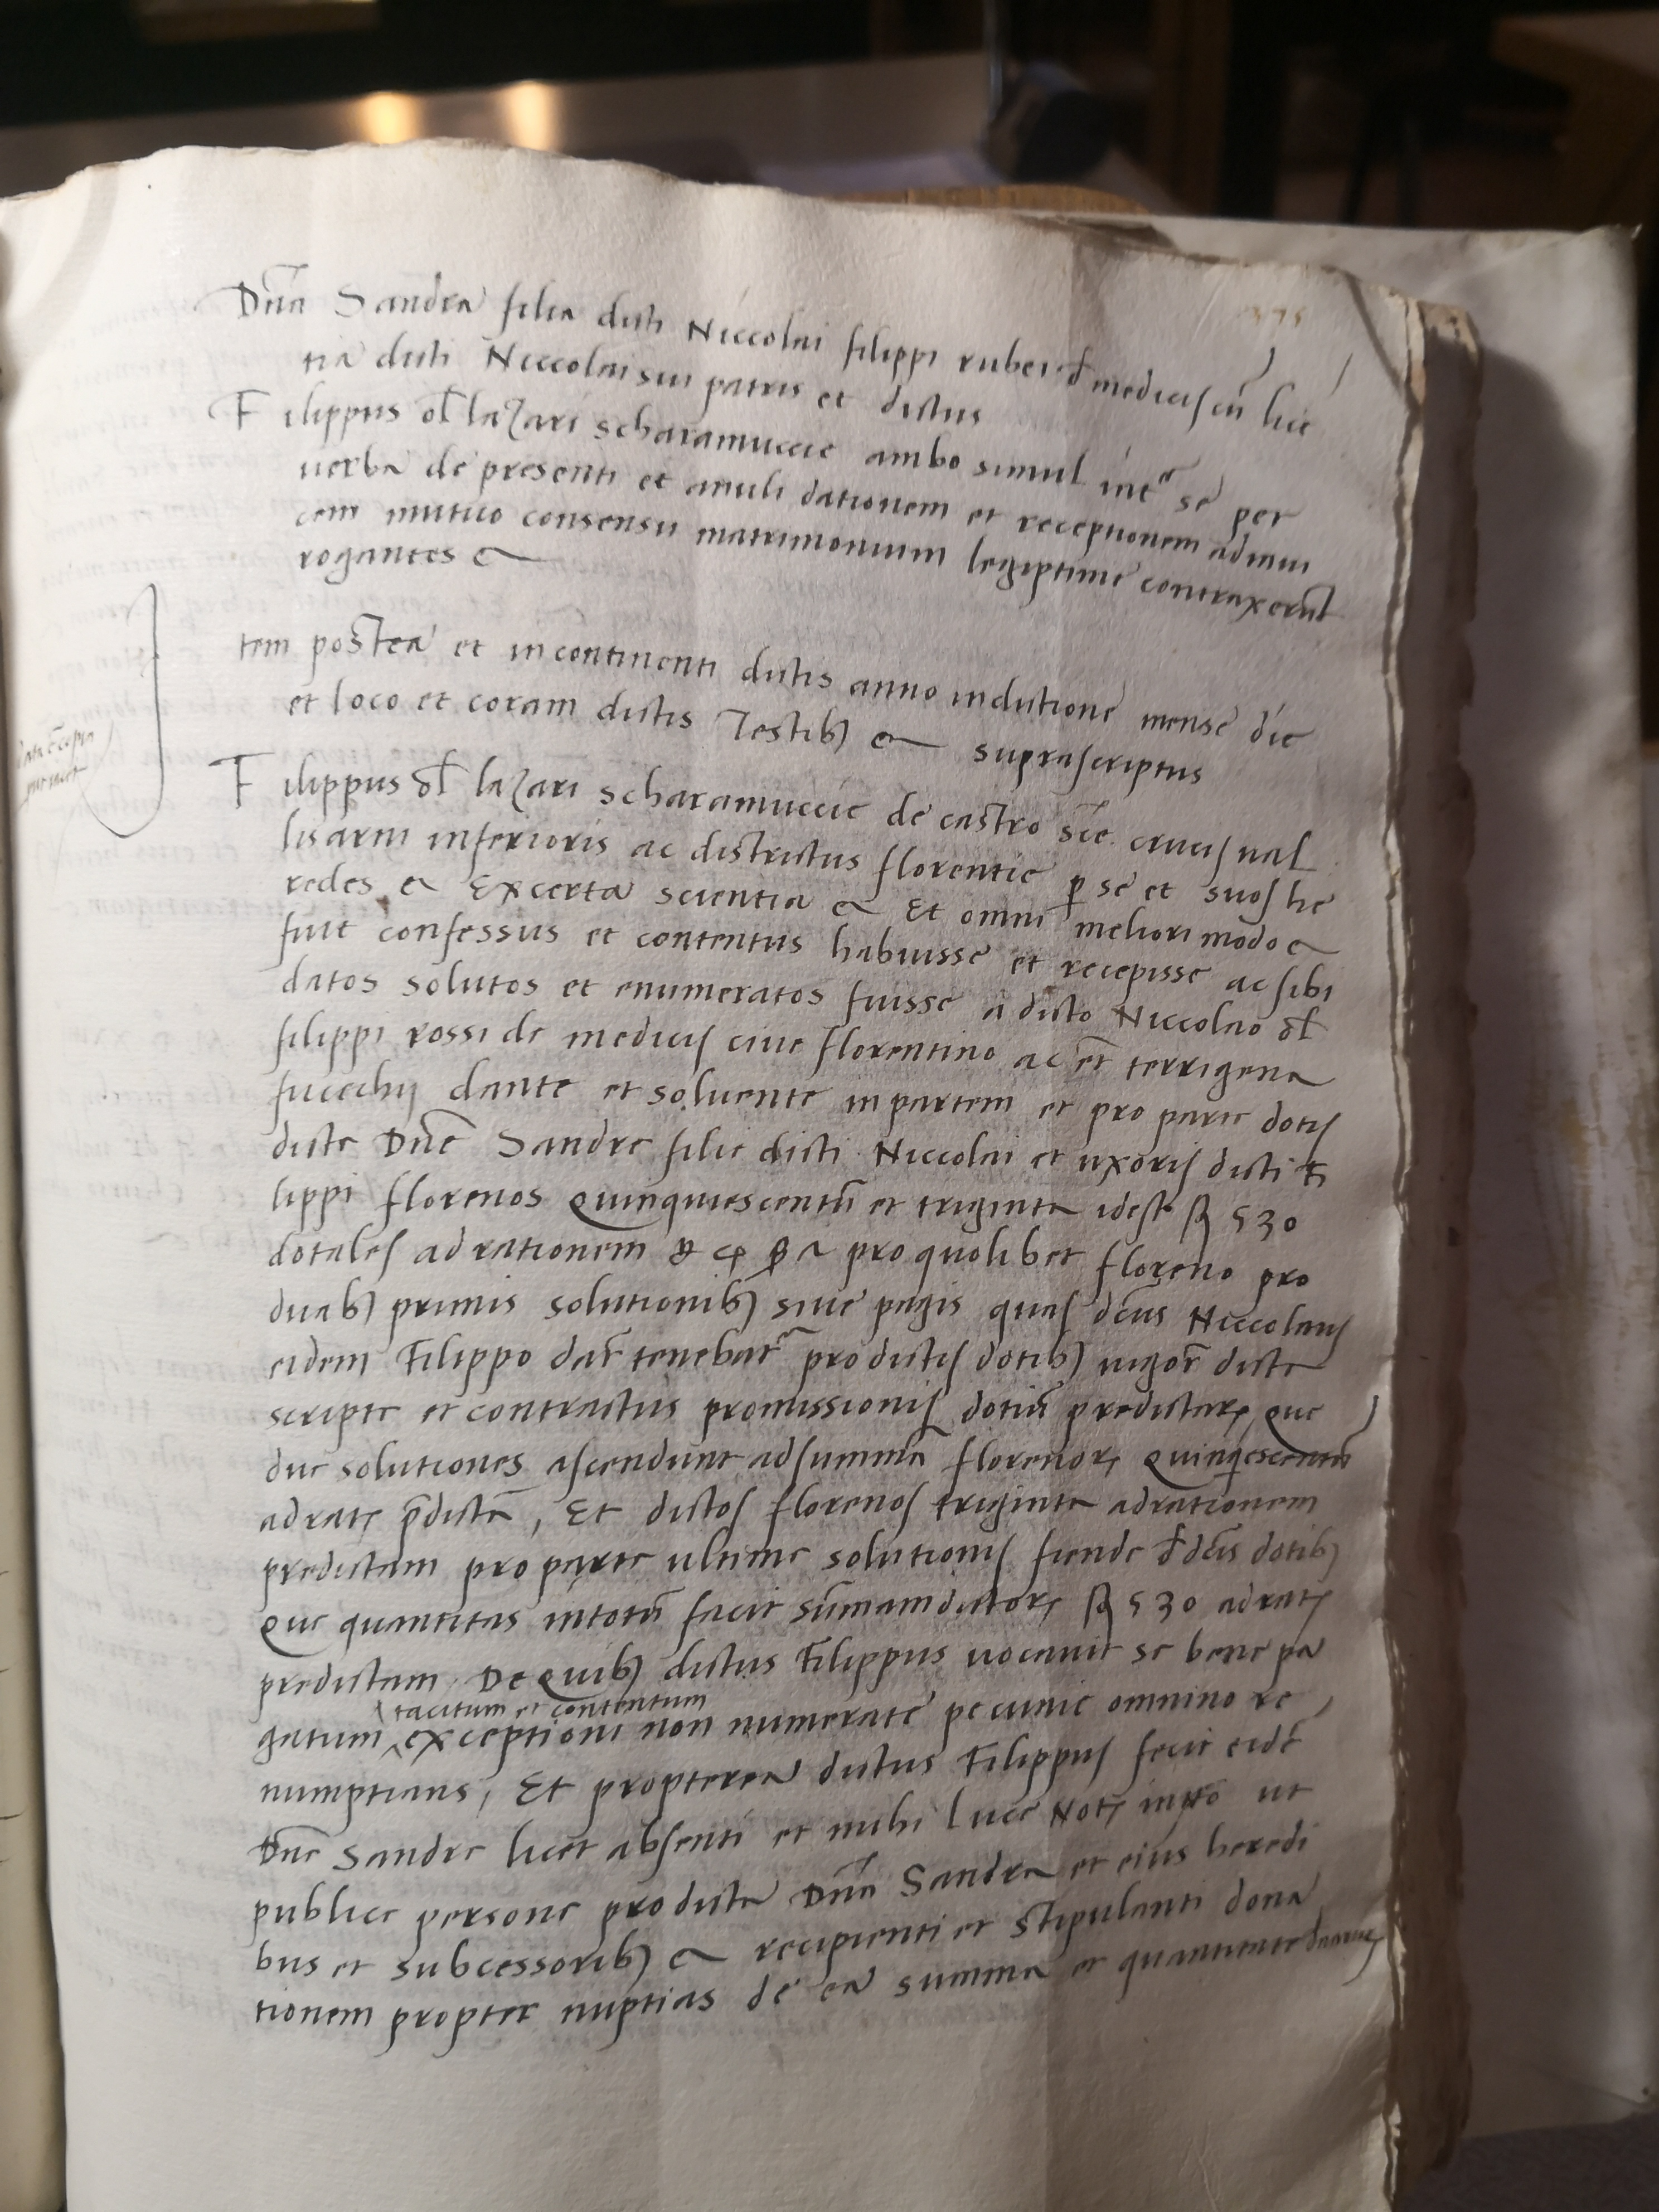 375
Dña Sandra filia dicti Niccolai filippi rubei đ medicis cũ licē
tia dicti Niccolai sui patris et dictus
Filippus ol̃ lazari scharamuccie ambo simul int̃ se per
verba de presenti et anuli dationem et receptionem ad invi
cem mutuo consensu matrimonium legiptime contraxerũt
rogantes &
Item postea et incontinenti dictis anno indictione mense die
et loco et coram dictis Testib; & suprascriptus
Data ẽ copia
Filippus ol̃ lazari scharamuccie de castro sc̃e crucis val
lis arni inferioris ac districtus florentie p̱ se et suos he
redes & Ex certa scientia & Et omni meliori modo &
fuit confessus et contentus habuisse et recepisse ac sibi
datos solutos et enumeratos fuisse a dicto Niccolao ol̃
filippi rossi de medicis cive florentino ac et̃ terrigena
fucechij dante et solvente in partem et pro parte dotis
dicte Dñe Sandre filie dicti Niccolai et uxoris dicti Fi
lippi florenos Quinquiescentũ et triginta idest fl 530
dotales ad rationem pro quolibet floreno pro
duab; primis solutionib; sive pagis quas dc̃us Niccolaus
eidem Filippo dar̃ tenebat̃ pro dictis dotib; vigor̃ dicte
scripte et contractus promissionis dotiũ predictaꝝ Que
due solutiones ascendunt ad summã florenoꝝ Quinq̃escentũ
ad rat̃ p̃dictã, Et dictos florenos triginta ad rationem
predictam pro parte ultime solutionis fiende đ dc̃is dotib;
Que quantitas in totũ facit sũmam dictoꝝ fl 530 ad rat̃
predictam. De Quib; dictus Filippus vocavit se bene pa
tacitum et contentum
gatum exceptioni non numerate pecunie omnino re
numptians, Et propterea dictus Filippus fecit eid̃
Dñe Sandre licet absenti et mihi Luce Not̃ infrõ ut
publice persone pro dicta Dña Sandra et eius heredi
bus et subcessorib; & recipienti et stipulanti dona
tionem propter nuptias de ea summa et quantitate